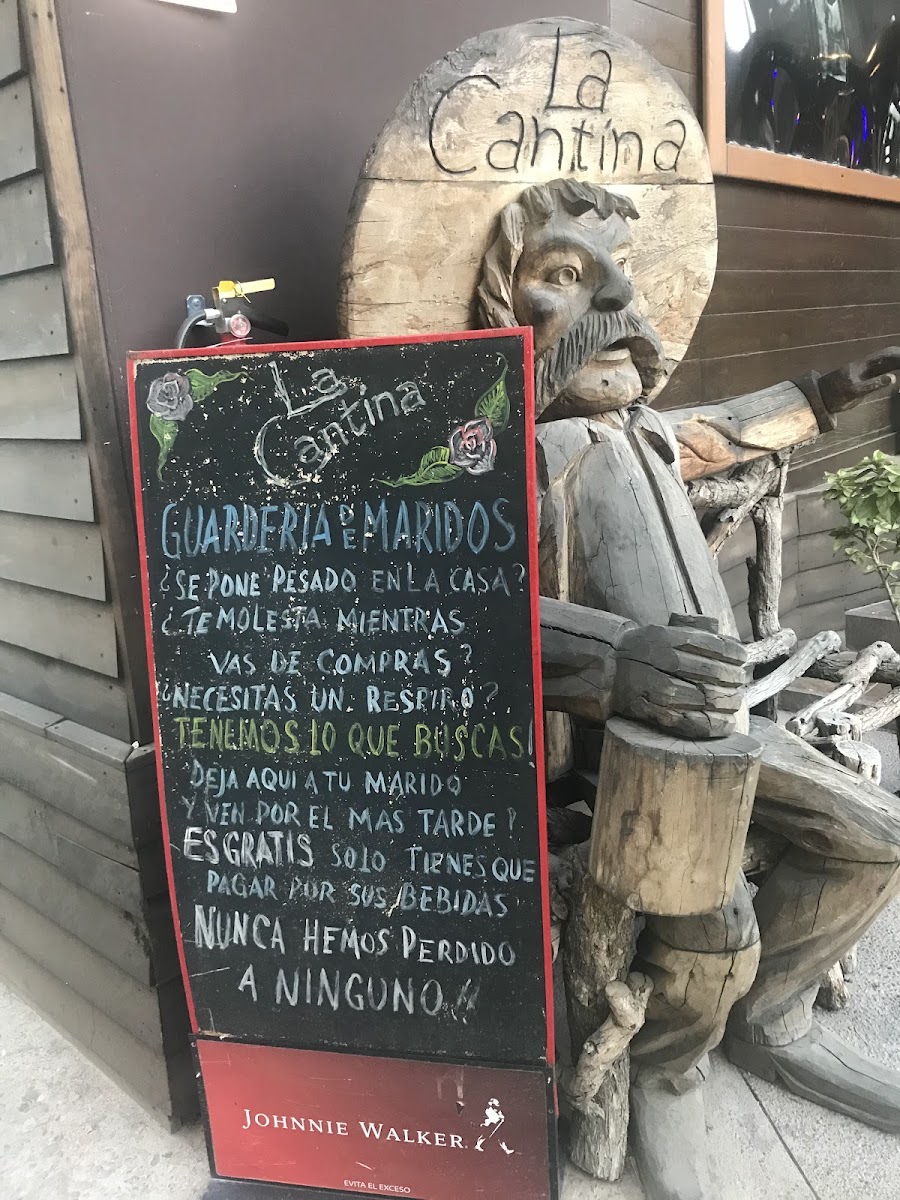 La
Cantina
La
Cantina
GUARDERIA DE MARIDOS
¿SE PONE PESADO EN LA CASA?
¿TE MOLESTA MIENTRAS
VAS DE COMPRAS?
¿NECESITAS UN RESPIRO?
TENEMOS LO QUE BUSCAS!
DEJA AQUI A TU MARIDO
Y VEN POR EL MAS TARDE!
ES GRATIS SOLO TIENES QUE
PAGAR POR SUS BEBIDAS
NUNCA HEMOS PERDIDO
A NINGUNO!!
JOHNNIE WALKER
EVITA EL EXCESO